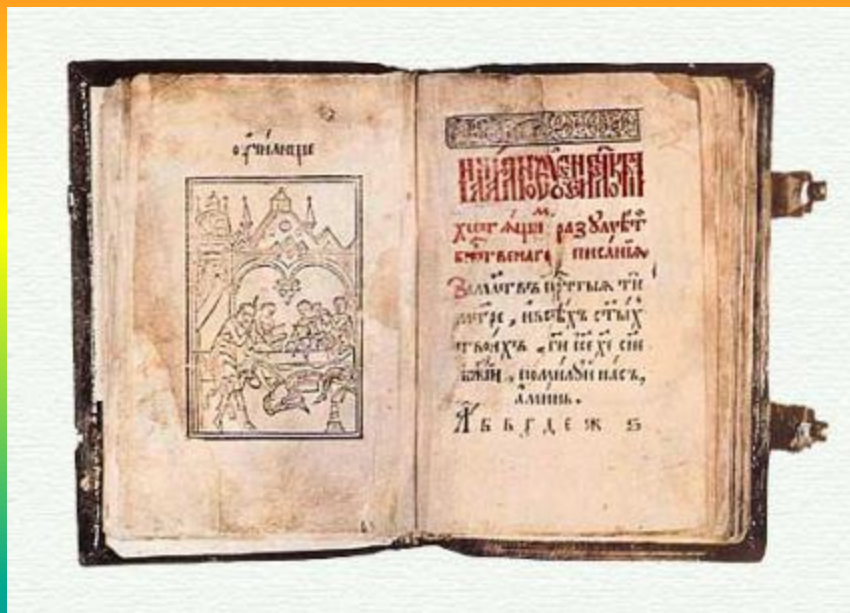 оучилище
хотѧщим разꙋмѣт
бжтвенаго писаниꙗ
За млтвъ прчтыѧ ти
мтре, и всѣхъ ст҃ыⷯ
твоихъ ги ісе хе сне
бжіи, помилꙋи насъ,
аминь.
А Б В Г Д Е Ж Ѕ